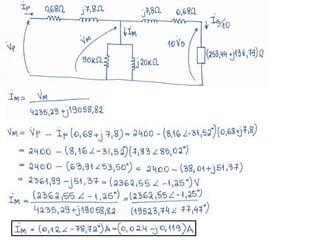 İp 0,68Ω j7,8Ω j7,8Ω 0,68Ω İs/10
V̇p V̇M İM 10V̇s (259,44+j136,79)Ω
90kΩ j20kΩ
İM = V̇M
4235,29+j19058,82
V̇M = V̇p - İp(0,68+j7,8) = 2400 - (8,16∠-31,52°)(0,68+j7,8)
= 2400 - (8,16∠-31,52°)(7,83∠85,02°)
= 2400 - (63,91∠53,50°) = 2400 - (38,01+j51,37)
= 2361,99 - j51,37 = (2362,55∠-1,25°)V
İM = (2362,55∠-1,25°) = (2362,55∠-1,25°)
4235,29+j19058,82 (19523,74∠77,47°)
İM = (0,12∠-78,72°)A = (0,024-j0,119)A